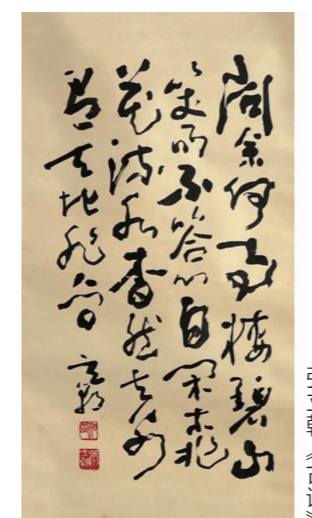 問余何事棲碧山
笑而不答心自閑桃
花流水杳然去別
有天地非人間
立朝